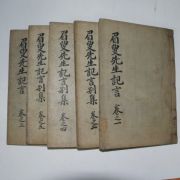 眉叟先生記言 卷之二
眉叟先生記言別集 卷之三
眉叟先生記言別集 卷之四
眉叟先生記言別集
眉叟先生記言